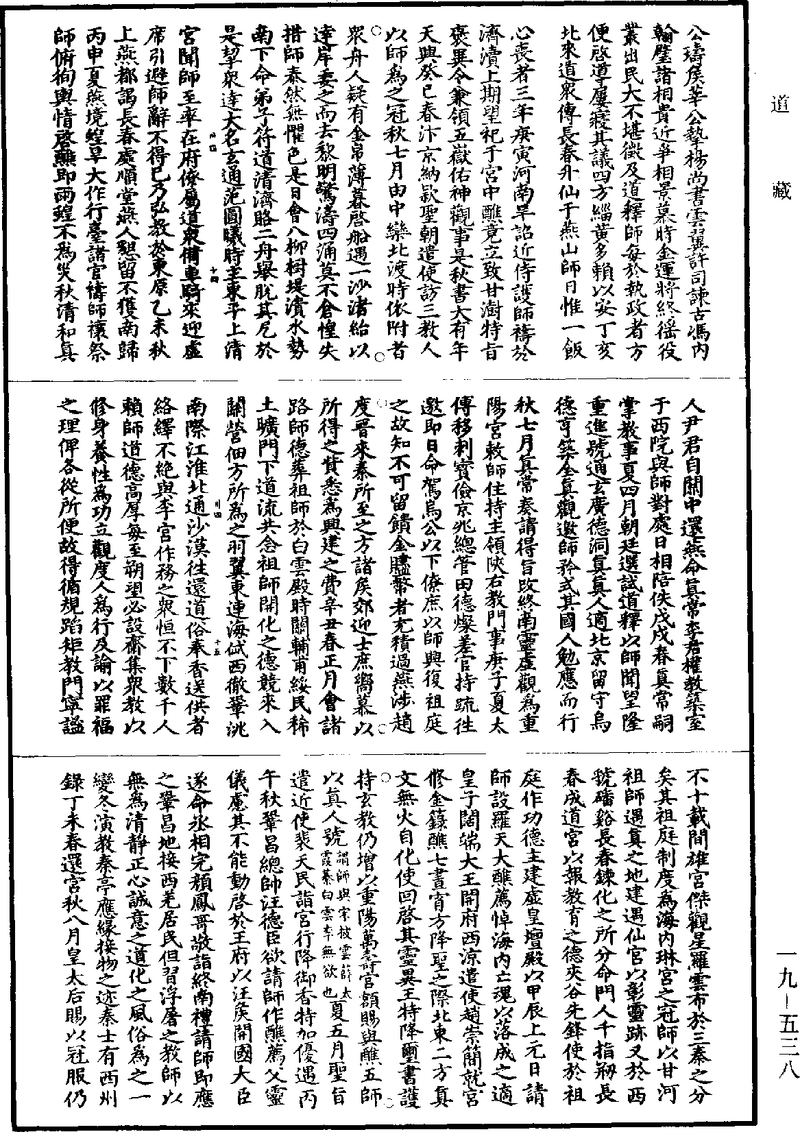 道藏
公璹侯莘公摯楊尚書雲翼許司諫古馮內
翰璧諸相貴近爭相景慕時金運將終徭役
叢出民大不堪徵及道釋師每於執政者方
便啓導屢寢其議四方緇黃多賴以安丁亥
北來道衆傳長春升仙于燕山師日惟一飯
心喪者三年庚寅河南旱詔近侍護師禱於
濟瀆上期望祀于宮中醮竟立致甘澍特旨
褒異令兼領五嶽佑神觀事是秋書大有年
天興癸巳春汴京納款聖朝遣使訪三教人
以師爲之冠秋七月由中欒北渡時依附者
衆舟人疑有金帛薄暮啓船遇一沙渚紿以
達岸委之而去黎明驚濤四涌莫不倉惶失
措師泰然無懼色是日會八柳樹堤潰水勢
南下命弟子符道清濟賂二舟舉脫其厄於
是挈衆達大名玄通范圓曦時主東平上清
宮聞師至率在府僚屬道衆備車騎來迎虛
席引避師辭不得已乃弘教於東原乙未秋
上燕都謁長春處順堂燕人懇留不獲南歸
丙申夏燕境蝗旱大作行臺諸官禱師禳祭
師俯徇輿情啓醮即雨蝗不爲災秋清和真
十四
人尹君自關中還燕命真常李君權教築室
于西院與師對處日相陪佚戊戌春真常嗣
掌教事夏四月朝廷選試道釋以師聞望隆
重進號通玄廣德洞真真人適北京留守烏
德亨築全真觀邀師矜式其國人勉應而行
秋七月真常奏請得旨改終南靈虛觀爲重
陽宮敕師住持主領陝右教門事庚子夏太
傅移剌寶儉京兆總管田德燦差官持疏徃
邀即日命駕烏公以下僚庶以師興復祖庭
之故知不可留饋金贐幣者充積過燕涉趙
度晉來秦所至之方諸侯郊迎士庶嚮慕以
所得之貲悉爲興建之費辛丑春正月會諸
路師德葬祖師於白雲殿時關輔甫綏民稀
土曠門下道流共念祖師開化之德競來入
關營佃方所爲之羽翼東連海岱西徹華洮
南際江淮北通沙漠徃還道俗奉香送供者
絡繹不絕與李宮作務之衆恒不下數千人
賴師道德高厚每至朔望必設齋集衆教以
修身養性爲功立觀度人爲行及諭以罪福
之理俾各從所便故得循規蹈矩教門寧謐
十五
不十載間雄宮傑觀星羅雲布於三秦之分
矣其祖庭制度爲海內琳宮之冠師以甘河
祖師遇真之地建遇仙宮以彰靈跡又於西
虢磻谿長春鍊化之所分命門人千指剏長
春成道宮以報教育之德夾谷先鋒使於祖
庭作功德主建虛皇壇殿以甲辰上元日請
師設羅天大醮薦悼海內亡魂以落成之適
皇子闊端大王開府西涼遣使趙崇簡就宮
修金籙醮七晝宵方降聖之際北東二方真
文無火自化使回啓其靈異王特降璽書護
持玄教仍增以重陽萬壽宮額賜與醮五師
以真人號謂師與宋披雲薛太霞綦白雲李無欲也夏五月聖旨
遣近使裴天民詣宮行降御香特加優遇丙
午秋鞏昌總帥汪德臣欲請師作醮薦父靈
儀慮其不能動啓於王府以汪侯開國大臣
遂命丞相完顏鳳哥敬詣終南禮請師即應
之鞏昌地接西羌居民但習浮屠之教師以
無爲清靜正心誠意之道化之風俗爲之一
變冬演教秦亭應緣接物之迹秦士有西州
錄丁未春還宮秋八月皇太后賜以冠服仍
一九—五三八